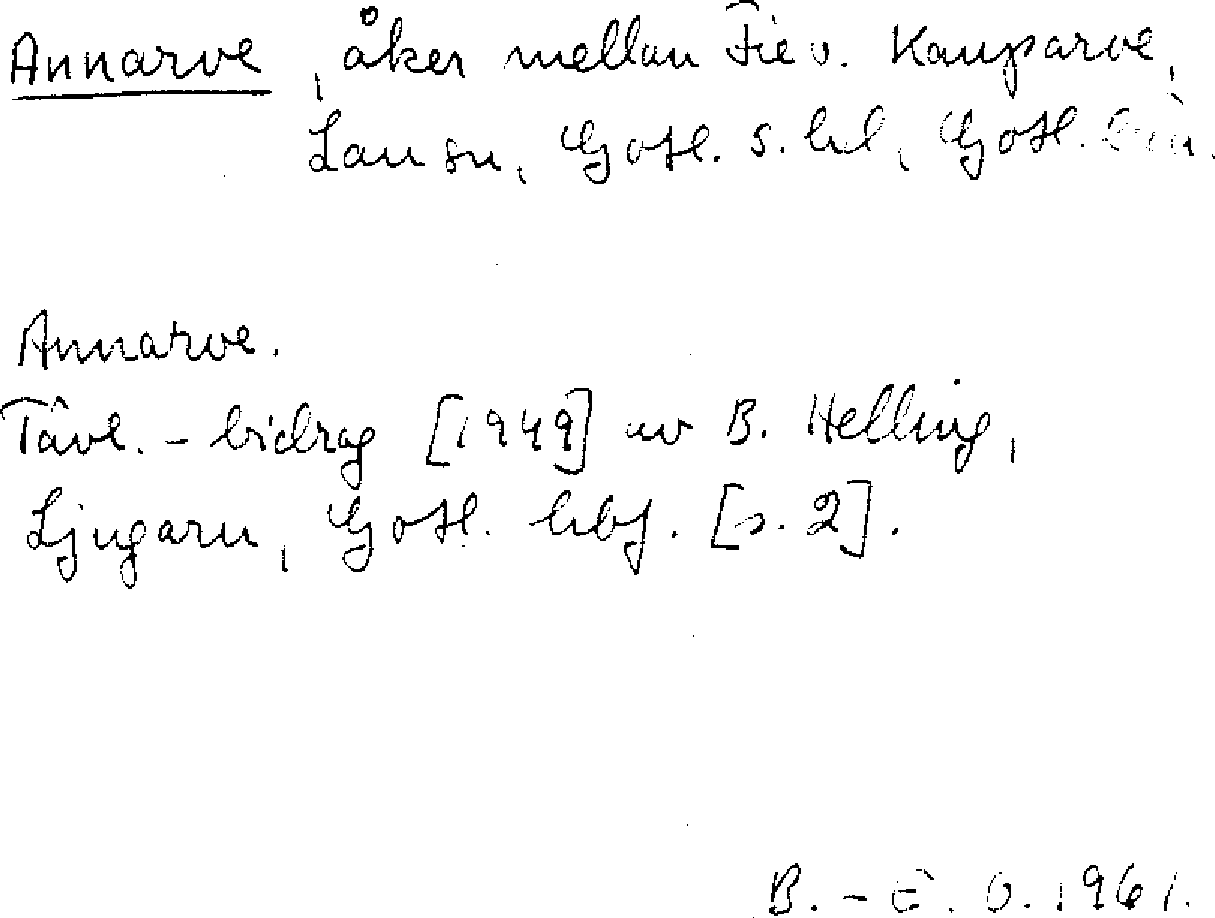 Annarve, åker mellan Fie o. Kauparve,
Lau sn, Gotl. s. hd, Gotl. län.
Annarve.
Tävl.-bidrag [1949] av B. Helling,
Ljugarn, Gotl. hbf. [s. 2].
B.-E. O. 1961.